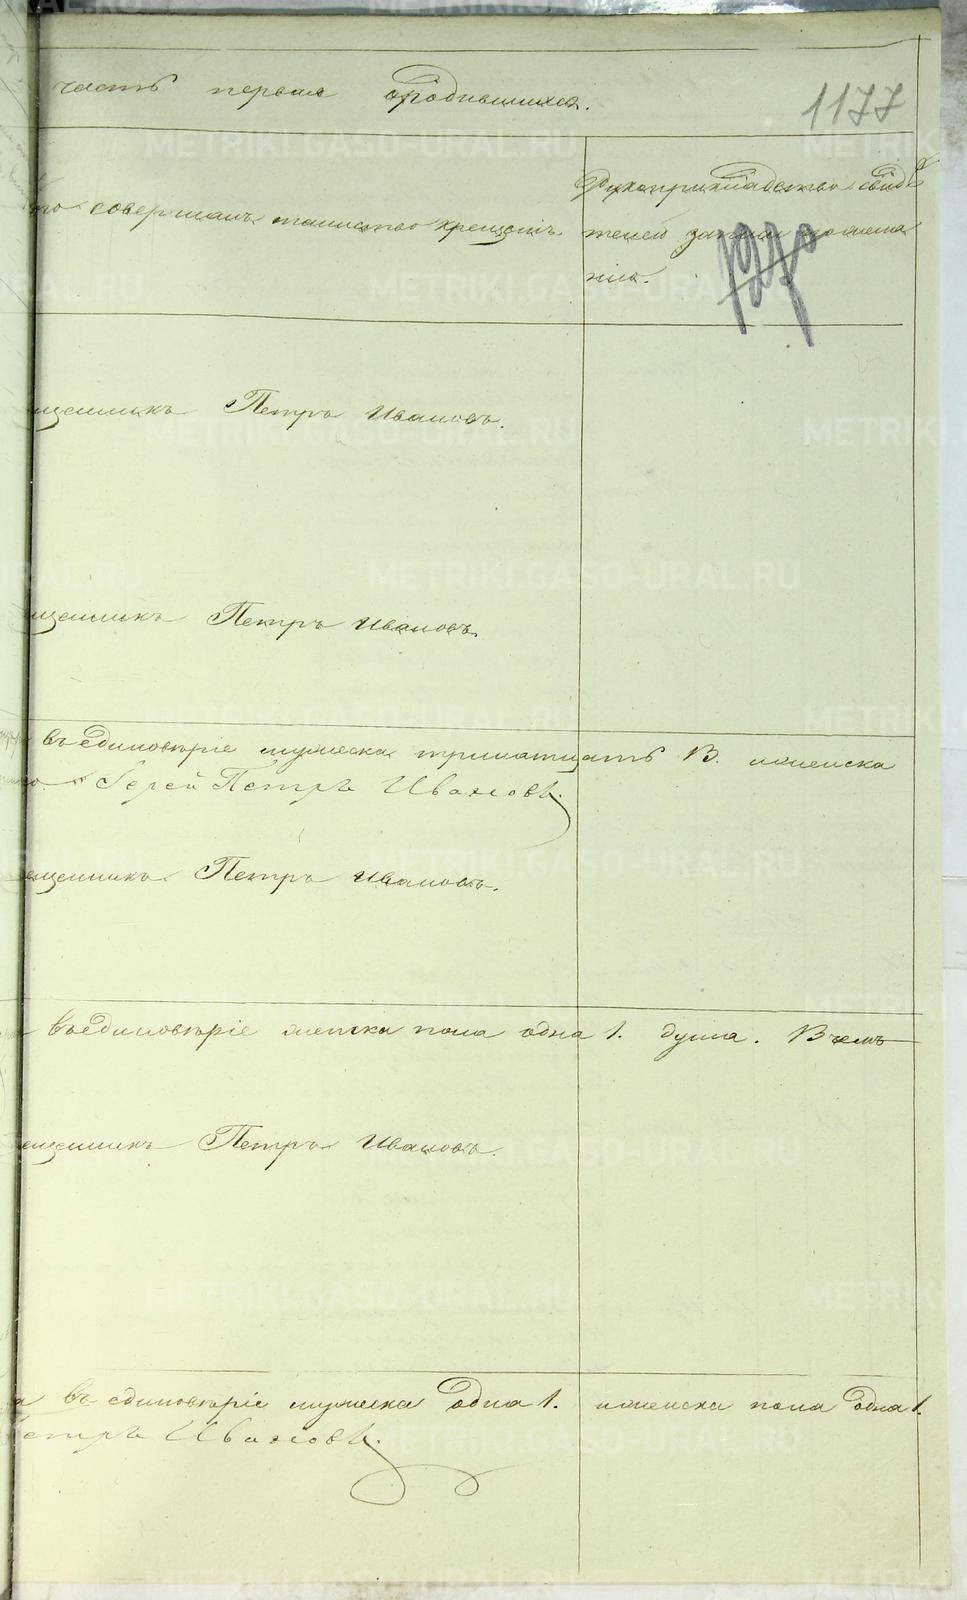 часть первая ородившихся.
1177
то совершалъ таинство крещенія.
Рукоприкладство свидѣ
телей записи пожела
нію.
1270
щенникъ Петръ Ивановъ.
щенникъ Петръ Ивановъ.
въ единовѣріе мужеска тринатцать В. иженска
Іерей Петръ Ивановъ.
ещенникъ Петръ Ивановъ.
въединовѣріе женска пола одна 1. душа. В чемъ
ещенникъ Петръ Ивановъ.
а въ единовѣріе мужеска одна 1. иженска пола одна 1.
Петръ Ивановъ.
METRIKI.GASO-URAL.RU